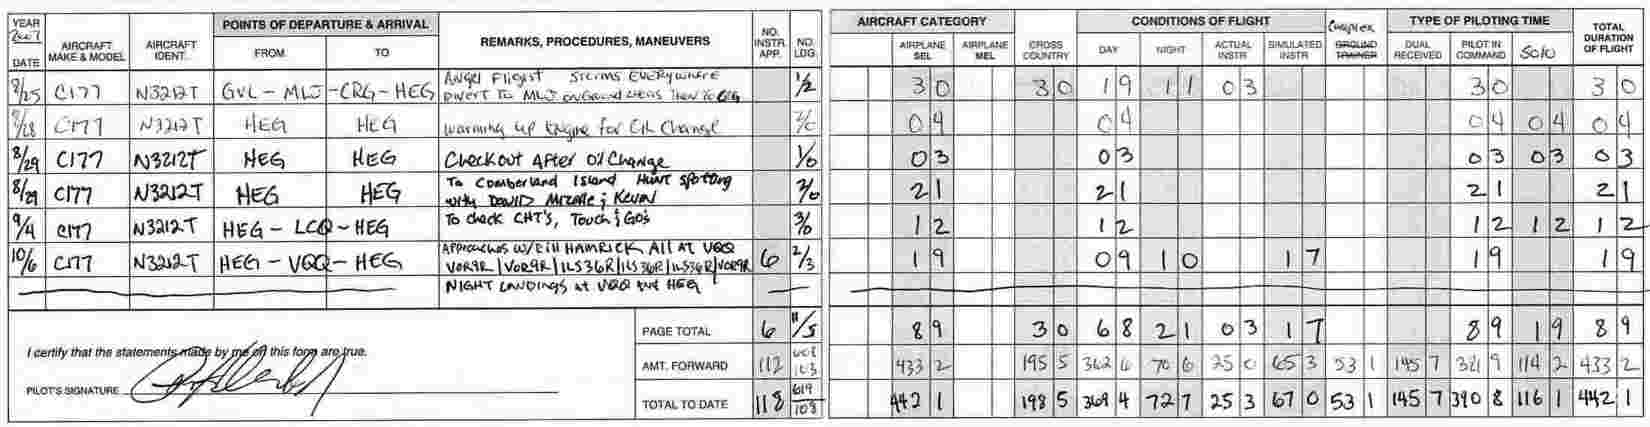 YEAR 2007 POINTS OF DEPARTURE & ARRIVAL AIRCRAFT CATEGORY CONDITIONS OF FLIGHT Complex TYPE OF PILOTING TIME
DATE AIRCRAFT MAKE & MODEL AIRCRAFT IDENT. FROM TO REMARKS, PROCEDURES, MANEUVERS NO. INSTR. APP. NO. LDG. AIRPLANE SEL AIRPLANE MEL CROSS COUNTRY DAY NIGHT ACTUAL INSTR SIMULATED INSTR GROUND TRAINER DUAL RECEIVED PILOT IN COMMAND Solo TOTAL DURATION OF FLIGHT
8/25 C177 N3212T GVL - MLJ - CRG - HEG Angel Flight Storms Everywhere 1/2 3 0 3 0 1 9 1 1 0 3 3 0 3 0
Divert to MLJ on Ground then to CRG
8/28 C177 N3212T HEG HEG Warming up Engine for Oil Change 0/0 0 4 0 4 0 4 0 4 0 4
8/29 C177 N3212T HEG HEG Checkout After Oil Change 1/0 0 3 0 3 0 3 0 3 0 3
8/29 C177 N3212T HEG HEG To Cumberland Island Hunt Spotting 2 1 2 1 2 1 2 1
with David & Kevin
9/4 C177 N3212T HEG - LCQ - HEG To check CHT's, Touch & Go's 3/0 1 2 1 2 1 2 1 2 1 2
10/6 C177 N3212T HEG - VQQ - HEG Approaches w/Bill HAMRICK All at VQQ 6 2/3 1 9 0 9 1 0 1 7 1 9 1 9
VOR9R | VOR9R | ILS36R | ILS36R | ILS36R | VOR9R
NIGHT LANDINGS at VQQ and HEG
PAGE TOTAL 6 11/5 8 9 3 0 6 8 2 1 0 3 1 7 8 9 1 9 8 9
I certify that the statements made by me on this form are true.
AMT. FORWARD 112 608 103 433 2 195 5 362 6 70 6 25 0 65 3 53 1 145 7 381 9 114 2 433 2
PILOT'S SIGNATURE
TOTAL TO DATE 118 619 108 442 1 198 5 369 4 72 7 25 3 67 0 53 1 145 7 390 8 116 1 442 1